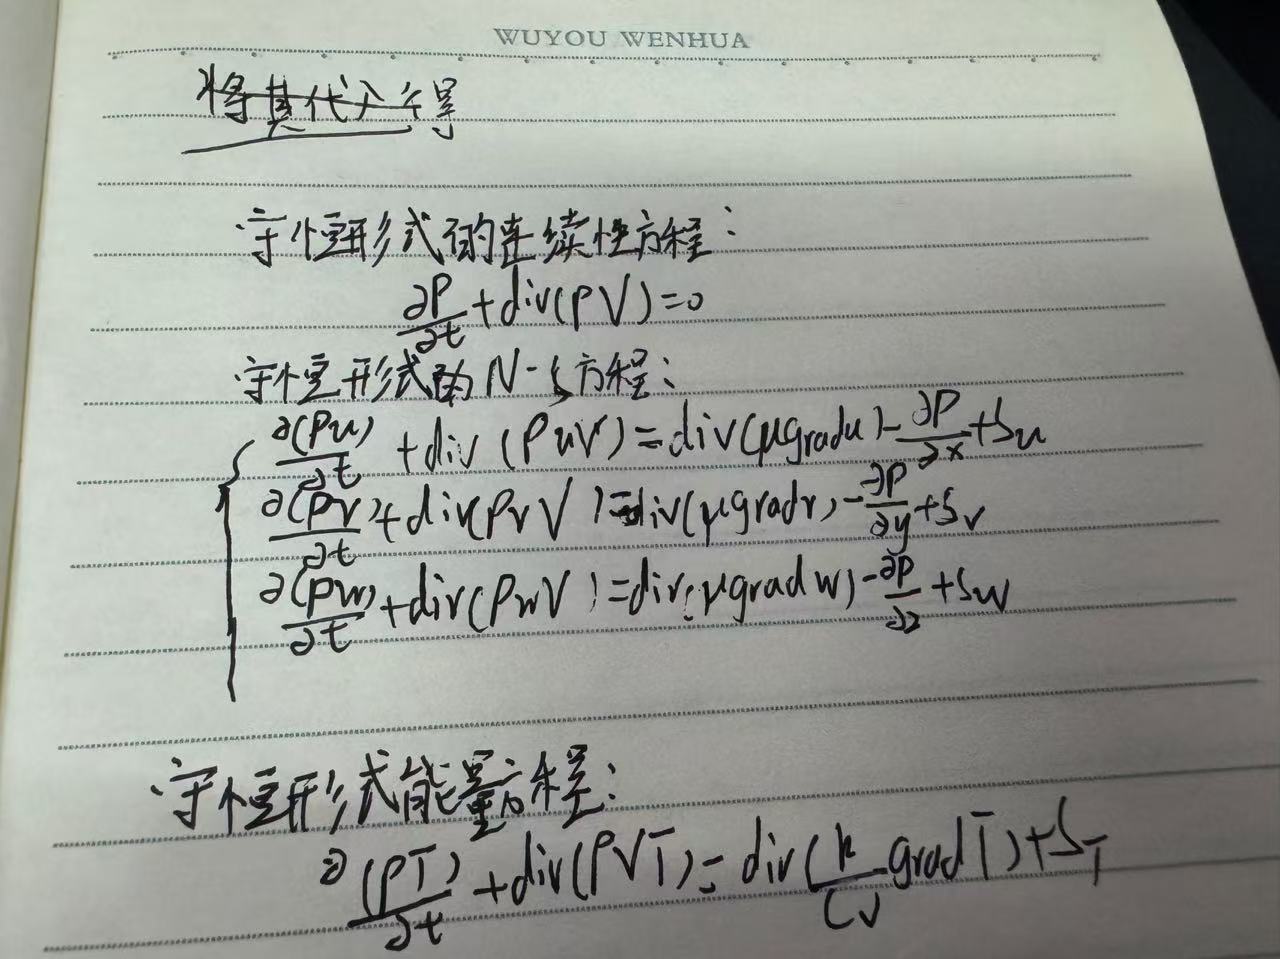 WUYOU WENHUA
将其代入得
守恒形式的连续性方程：
∂ρ/∂t + div(ρV) = 0
守恒形式的N-S方程：
∂(ρu)/∂t + div(ρuV) = div(μgradu) - ∂P/∂x + Su
∂(ρv)/∂t + div(ρvV) = div(μgradv) - ∂P/∂y + Sv
∂(ρw)/∂t + div(ρwV) = div(μgradw) - ∂P/∂z + Sw
守恒形式能量方程：
∂(ρT)/∂t + div(ρVT) = div(k/Cv gradT) + ST